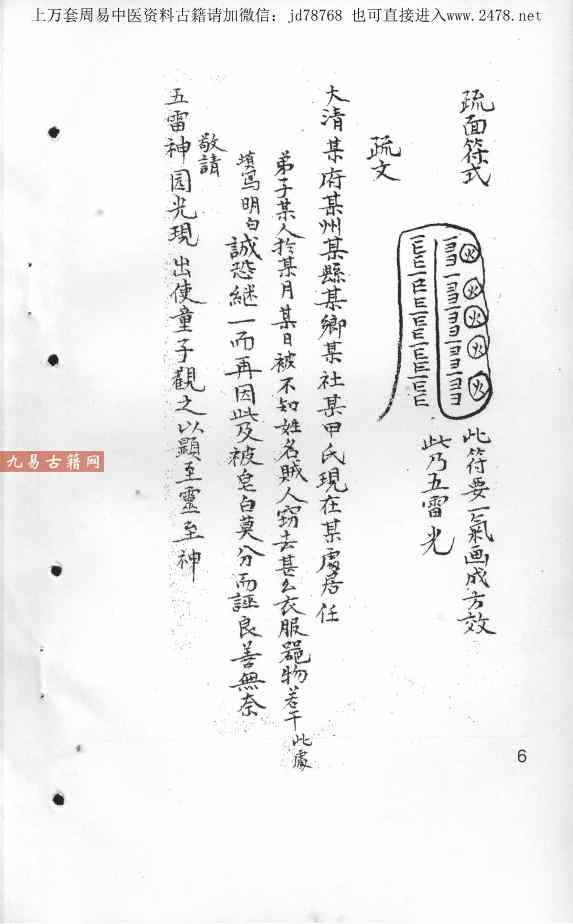 上万套周易中医资料古籍请加微信：jd78768 也可直接进入www.2478.net
疏面符式
火火火火火
此符要一氣画成方效
此乃五雷光
疏文
大清某府某州某縣某鄉某社某甲氏現在某處居住
弟子某人於某月某日被不知姓名賊人窃去甚么衣服器物若干此處
填写明白誠恐継一而再因此及被皂白莫分而誣良善無奈
敬請
五雷神园光現出使童子觀之以顯至靈至神
九易古籍网
6